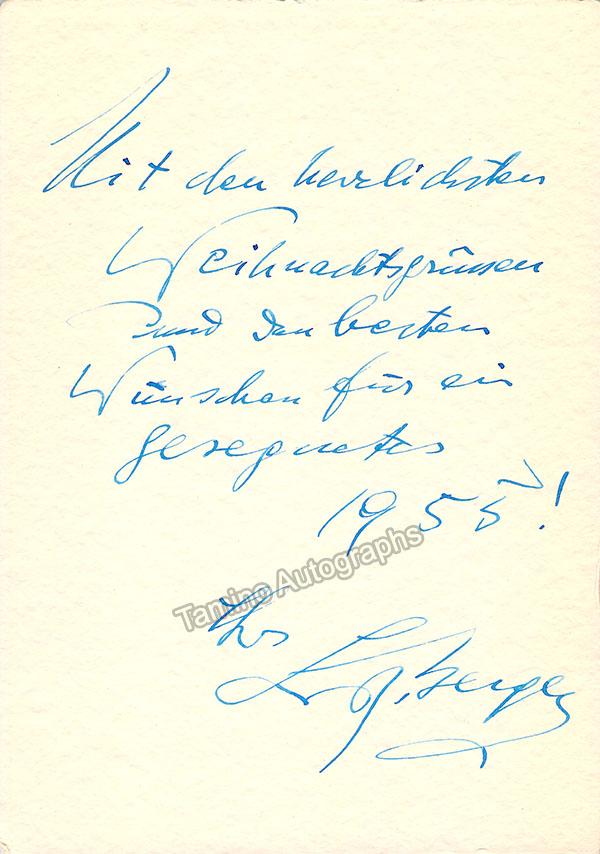 Mit den herzlichsten
Weihnachtsgrüssen
und den besten
Wünschen für ein
gesegnetes
1955!
Tamino Autographs
Ihr